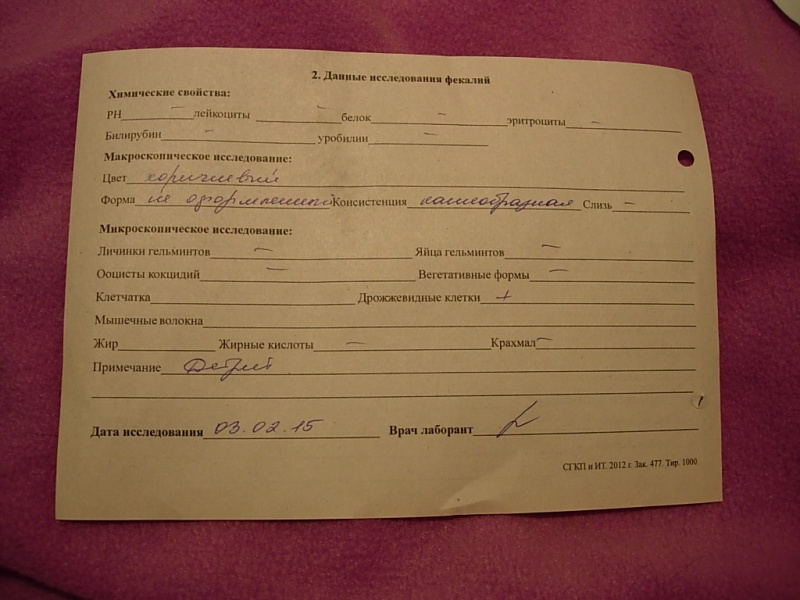 2. Данные исследования фекалий
Химические свойства:
РН — лейкоциты — белок — эритроциты —
Билирубин — уробилин —
Макроскопическое исследование:
Цвет коричневый
Форма не оформленный Консистенция кашеобразная Слизь —
Микроскопическое исследование:
Личинки гельминтов — Яйца гельминтов —
Ооцисты кокцидий — Вегетативные формы —
Клетчатка Дрожжевидные клетки +
Мышечные волокна
Жир Жирные кислоты — Крахмал —
Примечание Детрит
1
Дата исследования 03.02.15 Врач лаборант
СГКП и ИТ. 2012 г. Зак. 477. Тир. 1000